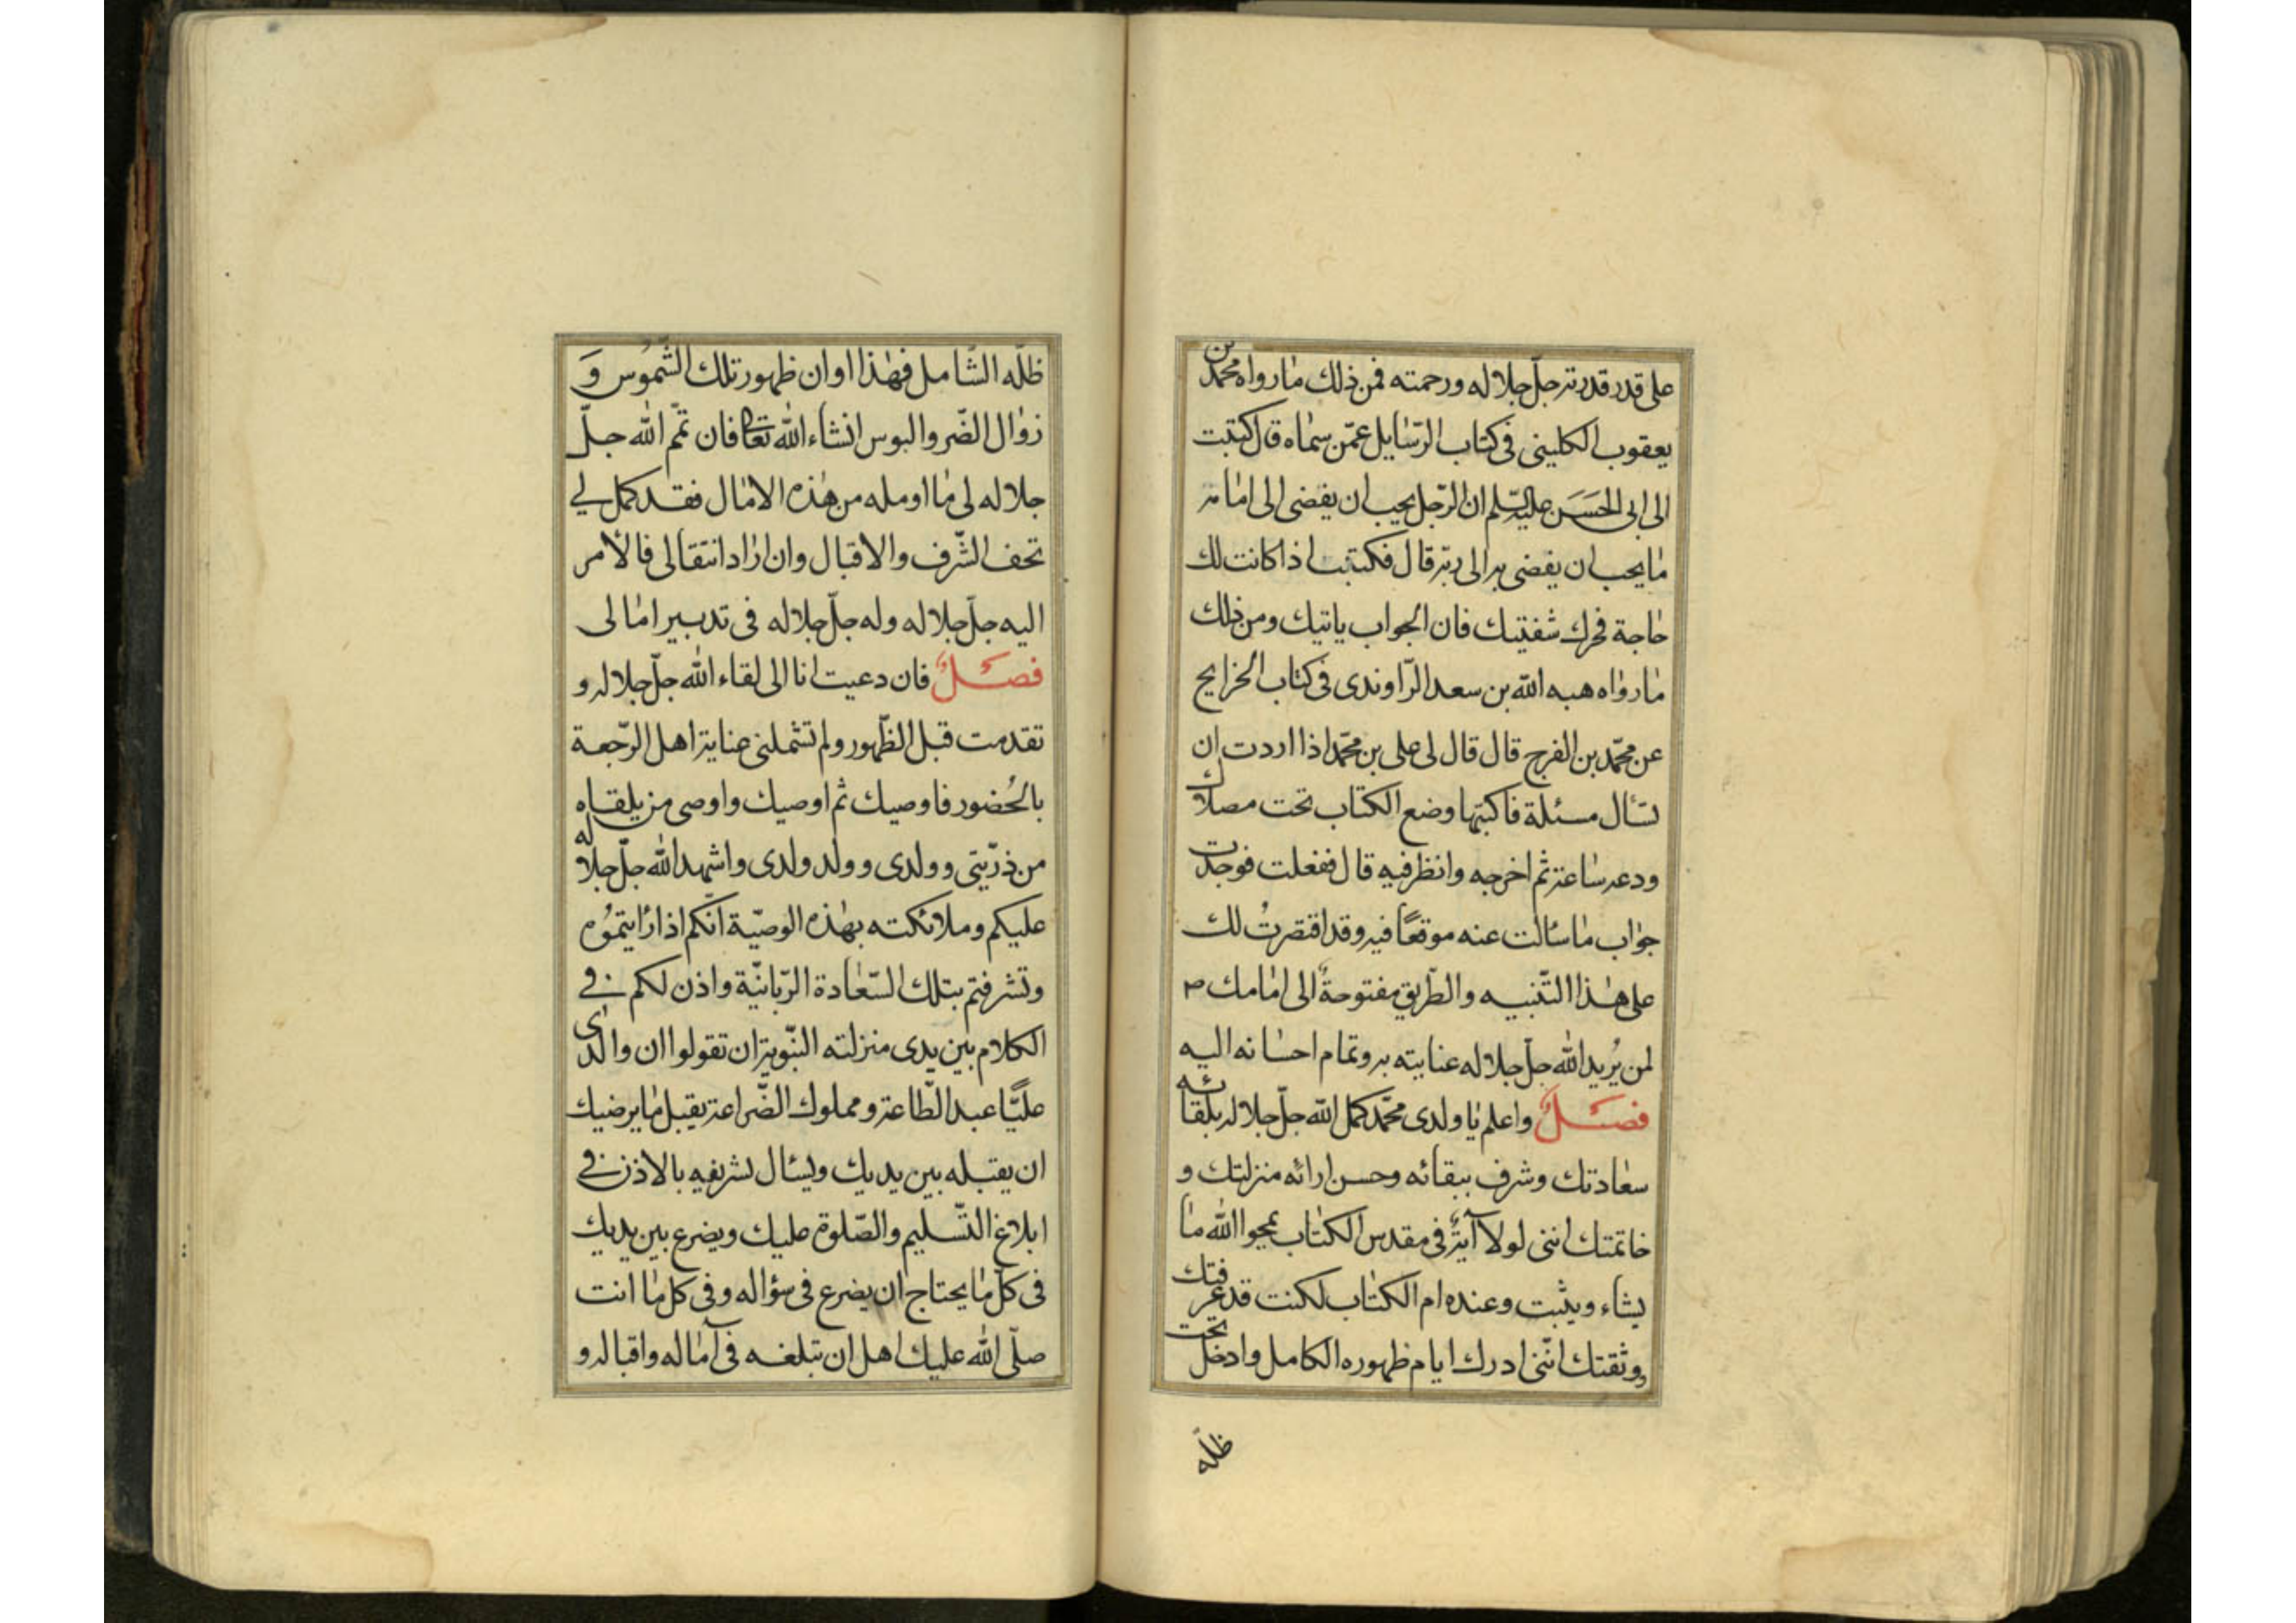 على قدر قدرته جلّ جلاله ورحمته فمن ذلك ما رواه محمّد بن
يعقوب الكلينى فى كتاب الرّسايل عمّن سماه قال كتبت
الى ابى الحَسَن عليه السّلم ان الرّجل يحب ان يفضى الى امامه
ما يحب ان يفضى به الى ربّه قال فكتبت اذا كانت لك
حاجة فحرك شفتيك فان الجواب ياتيك ومن ذلك
ما رواه هبه الله بن سعد الرّاوندى فى كتاب الخرايج
عن محمّد بن الفرج قال قال لى على بن محمّد اذا اردت ان
تسأل مسئلة فاكتبها وضع الكتاب تحت مصلاك
ودعه ساعة ثم اخرجه وانظر فيه قال ففعلت فوجدت
جواب ما سألت عنه موقعًا فيه وقد اقتصرتُ لك
على هذا التّنبيه والطّريق مفتوحةٌ الى امامك ص
لمن يُريد الله جلّ جلاله عنايته به وتمام احسانه اليه
فصلٌ واعلم يا ولدى محمّد كمل الله جلّ جلاله بلقائه
سعادتك وشرف ببقائه وحسن ارائه منزلتك و
خاتمتك اننى لولا آيةٌ فى مقدس الكتاب يمحوا الله ما
يشاء ويثبت وعنده ام الكتاب لكنت قد عرفتك
ووثقتك انّنى ادرك ايام ظهوره الكامل وادخل تحت
ظلّه
ظلّه الشّامل فهذا اوان ظهور تلك الشّمُوس وَ
زوال الضّر والبوس انشاء الله تعالى فان تمّم الله جلّ
جلاله لى ما اومله من هذه الامال فقد كمل لى
تحف الشّرف والاقبال وان اراد انتقالى فالأمر
اليه جلّ جلاله وله جلّ جلاله فى تدبير امالى
فصلٌ فان دعيت انا الى لقاء الله جلّ جلاله و
تقدمت قبل الظّهور ولم تشملنى عناية اهل الرّجعة
بالحُضور فاوصيك ثم اوصيك واوصى من يلقاه
من ذرّيتى وولدى وولد ولدى واشهد الله جلّ جلاله
عليكم وملائكته بهذه الوصيّة انّكم اذا رايتمُوه
وتشرفتم بتلك السّعادة الرّبانيّة واذن لكم فى
الكلام بين يدى منزلته النّبوية ان تقولوا ان والدى
عليًّا عبد الطّاعة ومملوك الضّراعة يقبل ما يرضيك
ان يقبله بين يديك ويسأل تشريفه بالاذن فى
ابلاغ التّسليم والصّلوة عليك ويضرع بين يديك
فى كلّ ما يحتاج ان يضرع فى سؤاله وفى كل ما انت
صلّى الله عليك اهل ان تبلغه فى آماله واقباله و